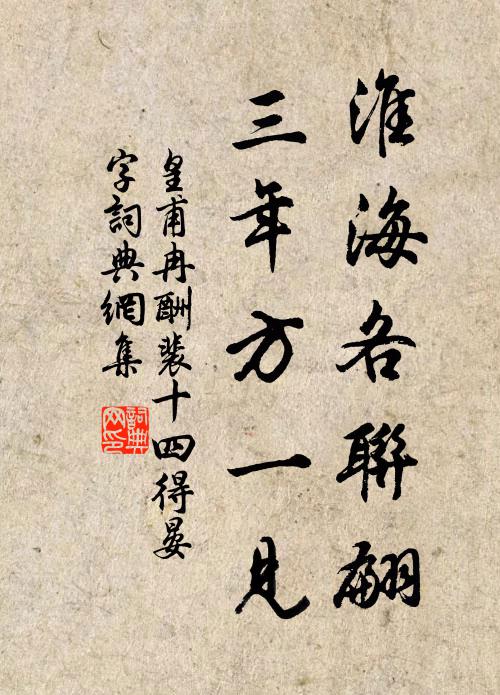 淮海各聯翩
三年方一見
皇甫冉酬裴十四得晏
字詞典網集
詞典
网印